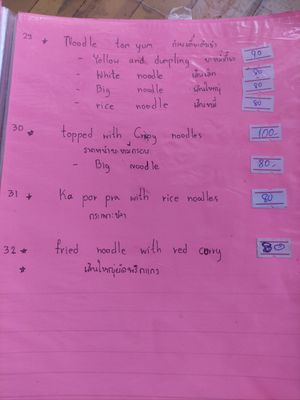 29 * Noodle tom yum ก๋วยเตี๋ยวต้มยำ
- Yollow and dumpling บะหมี่เกี๊ยว 90
- White noodle เส้นเล็ก 80
- Big noodle เส้นใหญ่ 80
- rice noodle เส้นหมี่ 80
30 * topped with Crispy noodles 100
ราดหน้าบะหมี่กรอบ
- Big noodle 80.-
31 * Ka por pra with rice noodles 80
กระเพาะปลา
32 * fried noodle with red curry 80
* เส้นใหญ่ผัดพริกแกง